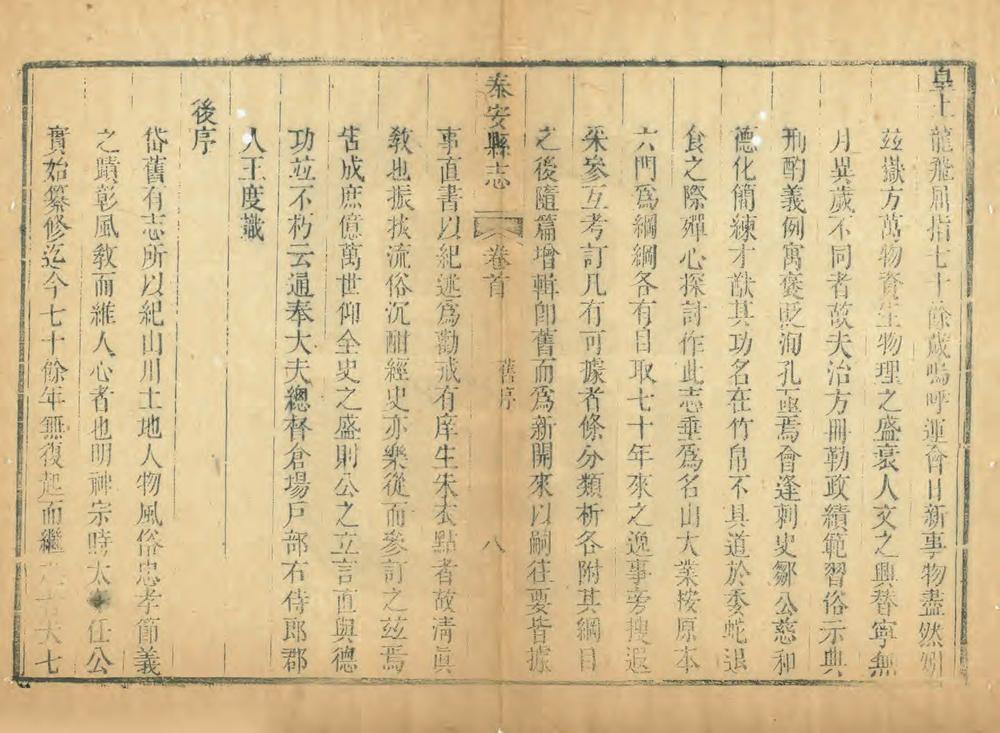 皇上龍飛屈指七十餘歲嗚呼運會日新事物盡然矧
玆嶽方萬物資生物理之盛衰人文之興替寧無
月異歲不同者故夫治方冊勒政績範習俗示典
刑酌義例寓褒貶洵孔亟焉會逢刺史鄒公慈和
德化簡練才猷其功名在竹帛不具道於委蛇退
食之際殫心探討作此志垂爲名山大業按原本
六門爲綱綱各有目取七十年來之逸事旁搜遐
釆參互考訂凡有可據者條分類析各附其綱目
之後隨篇增輯卽舊而爲新開來以嗣往要皆據
泰安縣志 卷首 舊序 八
事直書以紀述爲勸戒有庠生朱衣點者故淸眞
敎也振拔流俗沉酣經史亦樂從而參訂之玆焉
告成庶億萬世仰全史之盛則公之立言直與德
功竝不朽云通奉大夫總督倉場戸部右侍郎郡
人王度識
後序
岱舊有志所以紀山川土地人物風俗忠孝節義
之蹟彰風敎而維人心者也明神宗時太任公
實始纂修迄今七十餘年無復起而繼大七